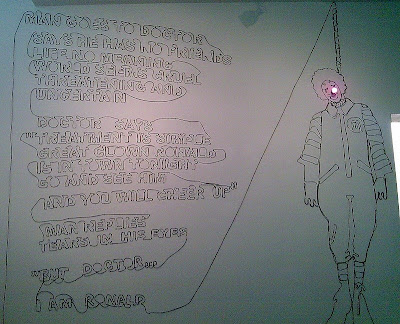 MAN GOES TO DOCTOR
SAYS HE HAS NO FRIENDS
LIFE NO MEANING
WORLD SEEMS CRUEL
THREATENING AND
UNCERTAIN
DOCTOR SAYS
"TREATMENT IS SIMPLE
GREAT CLOWN RONALD
IS IN TOWN TONIGHT
GO AND SEE HIM
AND YOU WILL CHEER UP"
MAN REPLIES
TEARS IN HIS EYES
"BUT DOCTOR...
I AM RONALD